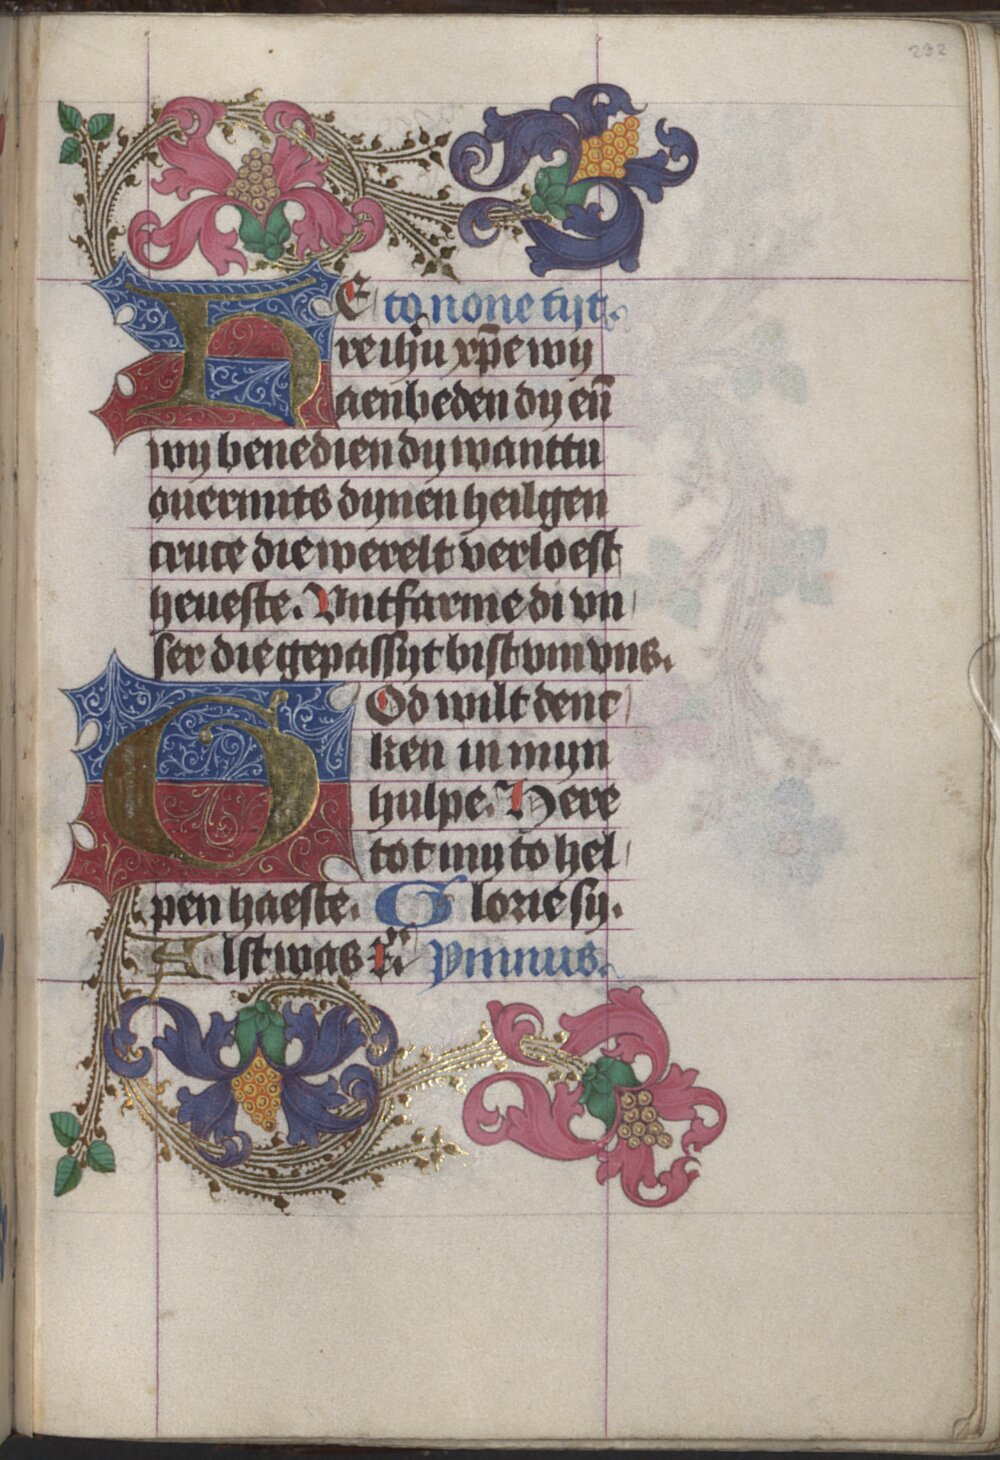 232
HE to none tijt.
re ihu xp̄e wy
aenbeden dy en̄
wy benedien dy wanttu
ouermits dynen heilgen
cruce die werelt verloest
heueste. Untfarme di vn
ser die gepassijt bist vm vns.
GOd wilt denc
ken in mijn
hulpe. Here
tot my to hel
pen haeste. Glorie sy.
Alst was Ympnus.